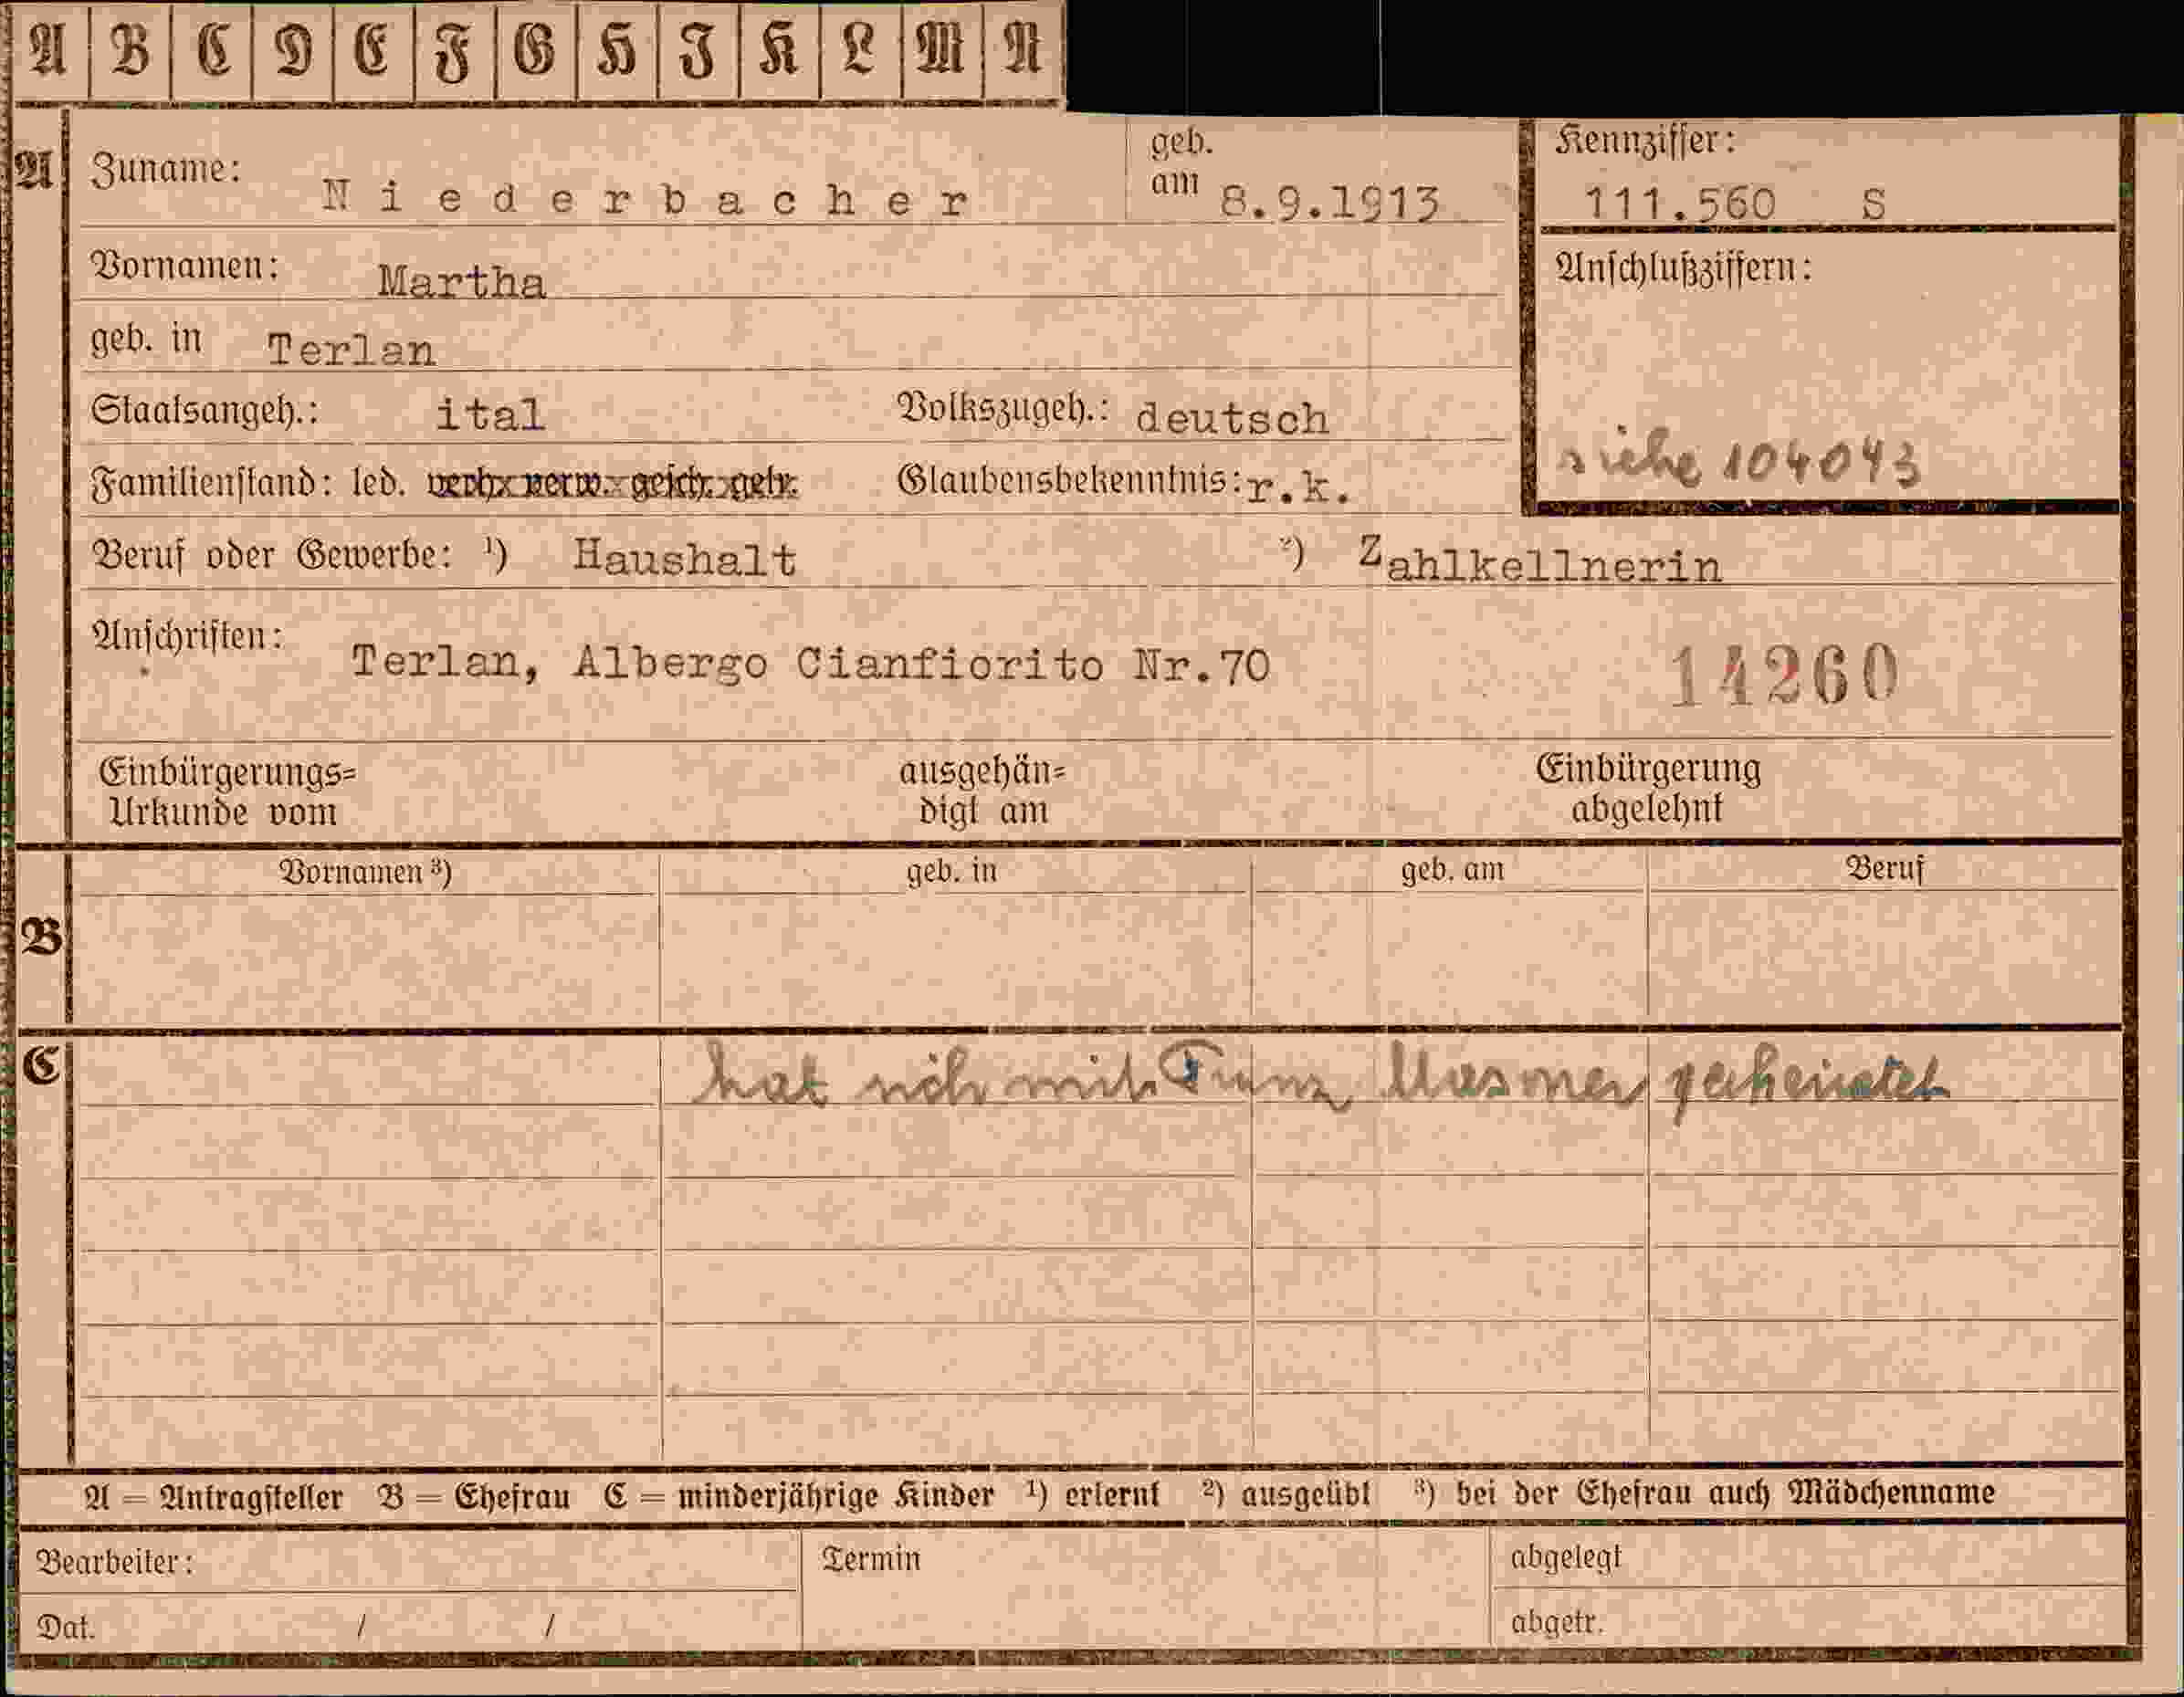 A B C D E F G H I K L M N
A Zuname: Niederbacher geb. am 8.9.1913 Kennziffer: 111.560 S
Vornamen: Martha Anschlußziffern:
geb. in Terlan
Staatsangeh.: ital Volkszugeh.: deutsch
siehe 104043
Familienstand: led. verh. verw. gesch. getr. Glaubensbekenntnis: r.k.
Beruf oder Gewerbe: ¹) Haushalt ²) Zahlkellnerin
Anschriften: Terlan, Albergo Cianfiorito Nr.70 14260
Einbürgerungs= ausgehän= Einbürgerung
Urkunde vom digt am abgelehnt
Vornamen ³) geb. in geb. am Beruf
B
C hat sich mit Franz Masmer geheiratet
A = Antragsteller B = Ehefrau C = minderjährige Kinder ¹) erlernt ²) ausgeübt ³) bei der Ehefrau auch Mädchenname
Bearbeiter: Termin abgelegt
Dat. / / abgetr.